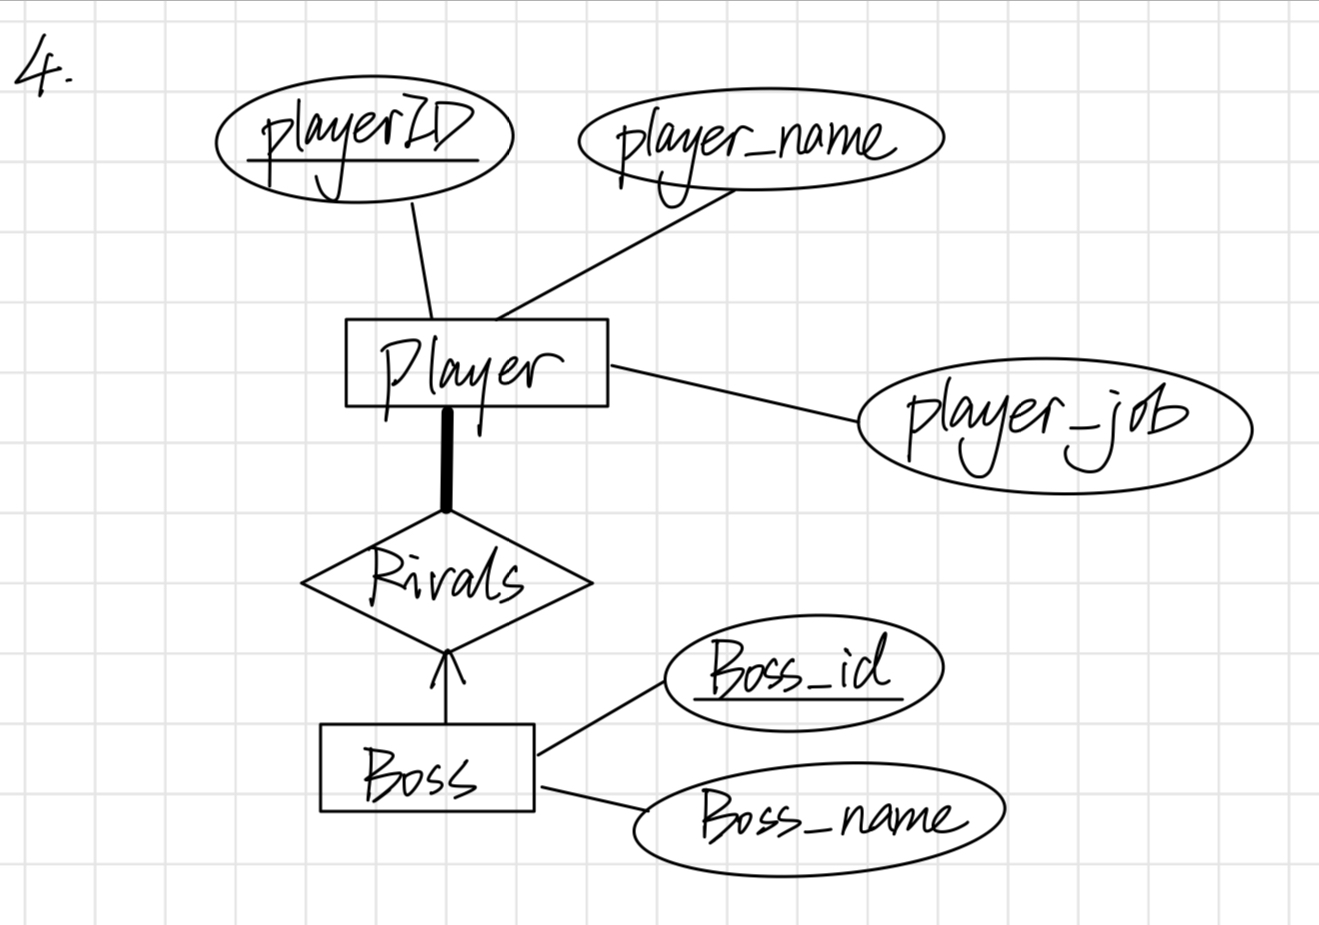 4.
playerID
player_name
Player
player_job
Rivals
Boss_id
Boss
Boss_name